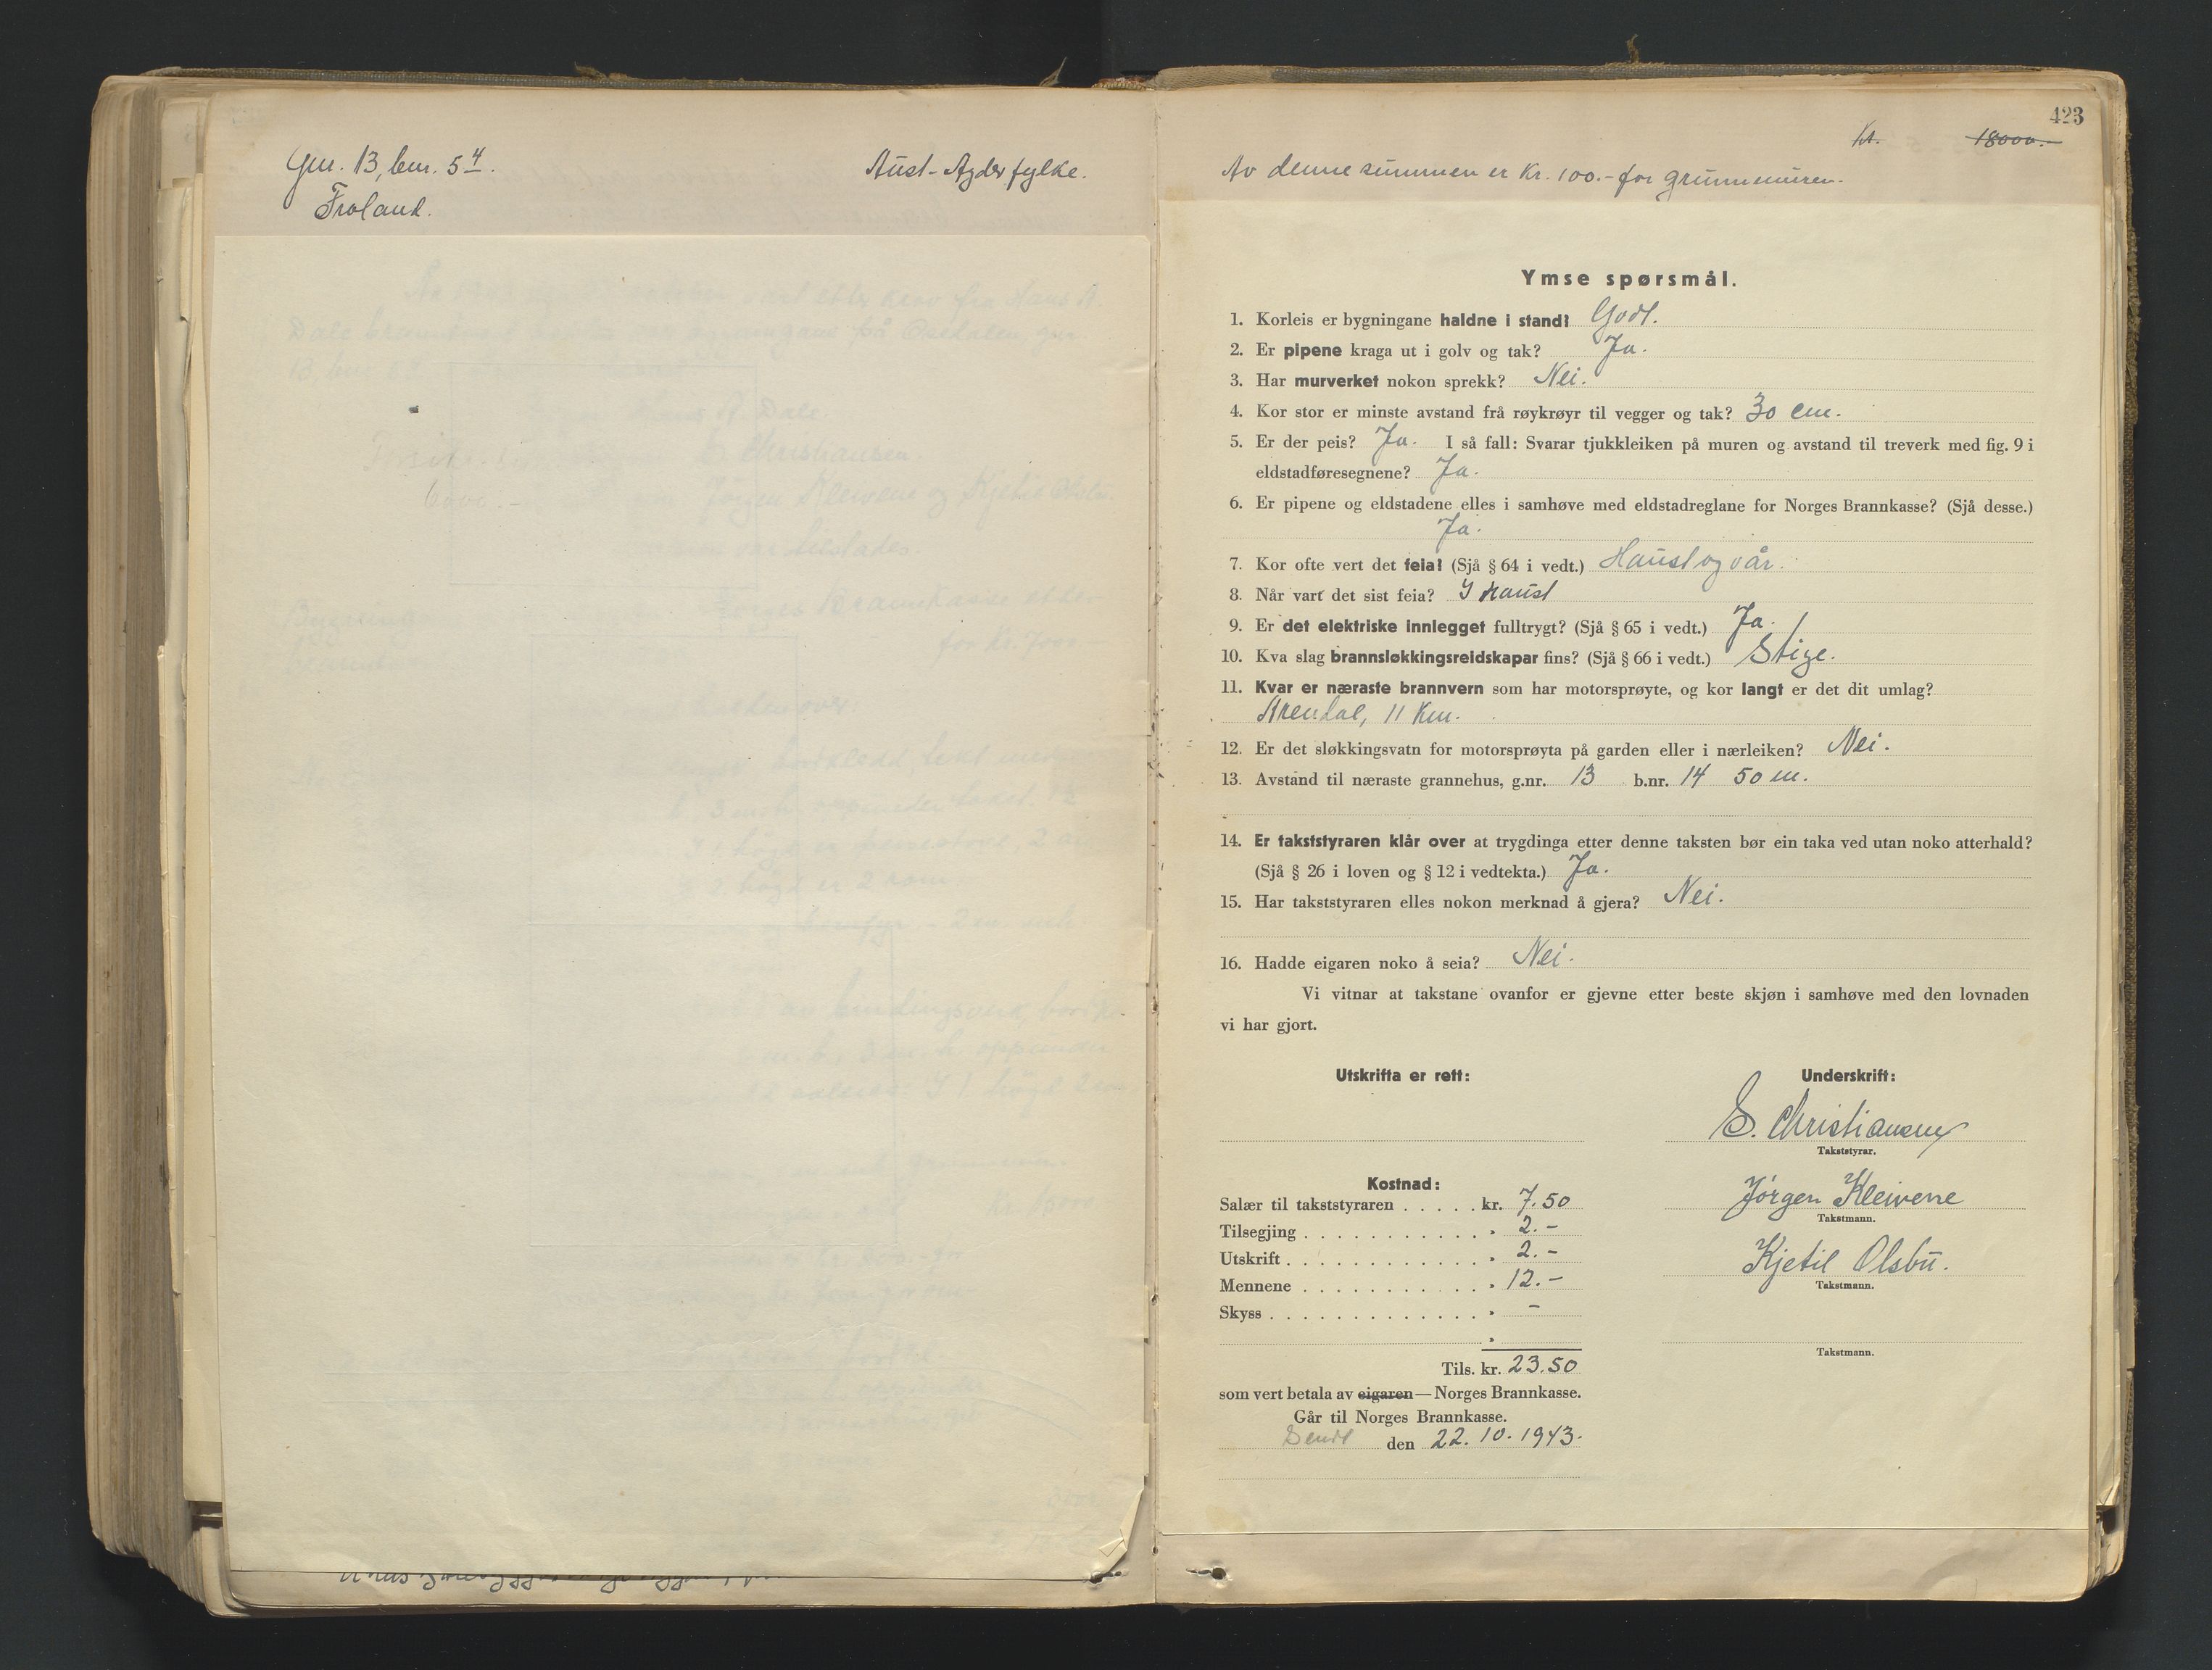 Gnr. 13, bnr. 54.
Froland.
Aust-Agder fylke.
423
Kr. 18000.-
Av denne summen er kr. 100.- for grunnmuren.
Ymse spørsmål.
1. Korleis er bygningane haldne i stand? Godt.
2. Er pipene kraga ut i golv og tak? Ja.
3. Har murverket nokon sprekk? Nei.
4. Kor stor er minste avstand frå røykrøyr til vegger og tak? 30 cm.
5. Er der peis? Ja. I så fall: Svarar tjukkleiken på muren og avstand til treverk med fig. 9 i
eldstadføresegnene? Ja.
6. Er pipene og eldstadene elles i samhøve med eldstadreglane for Norges Brannkasse? (Sjå desse.)
Ja.
7. Kor ofte vert det feia? (Sjå § 64 i vedt.) Haust og vår.
8. Når vart det sist feia? I haust
9. Er det elektriske innlegget fulltrygt? (Sjå § 65 i vedt.) Ja.
10. Kva slag brannsløkkingsreidskapar fins? (Sjå § 66 i vedt.) Stige.
11. Kvar er næraste brannvern som har motorsprøyte, og kor langt er det dit umlag?
Arendal, 11 km.
12. Er det sløkkingsvatn for motorsprøyta på garden eller i nærleiken? Nei.
13. Avstand til næraste grannehus, g.nr. 13 b.nr. 14 50 m.
14. Er takststyraren klår over at trygdinga etter denne taksten bør ein taka ved utan noko atterhald?
(Sjå § 26 i loven og § 12 i vedtekta.) Ja.
15. Har takststyraren elles nokon merknad å gjera? Nei.
16. Hadde eigaren noko å seia? Nei.
Vi vitnar at takstane ovanfor er gjevne etter beste skjøn i samhøve med den lovnaden
vi har gjort.
Utskrifta er rett:
Underskrift:
S. Christiansen
Takststyrar.
Jørgen Kleivene
Takstmann.
Kjetil Olsbu.
Takstmann.
Takstmann.
Kostnad:
Salær til takststyraren . . . . . kr. 7.50
Tilsegjing . . . . . . . . . . . . " 2.-
Utskrift . . . . . . . . . . . . . " 2.-
Mennene . . . . . . . . . . . . " 12.-
Skyss . . . . . . . . . . . . . . " -
"
Tils. kr. 23.50
som vert betala av eigaren — Norges Brannkasse.
Går til Norges Brannkasse.
Sendt den 22. 10. 1943.